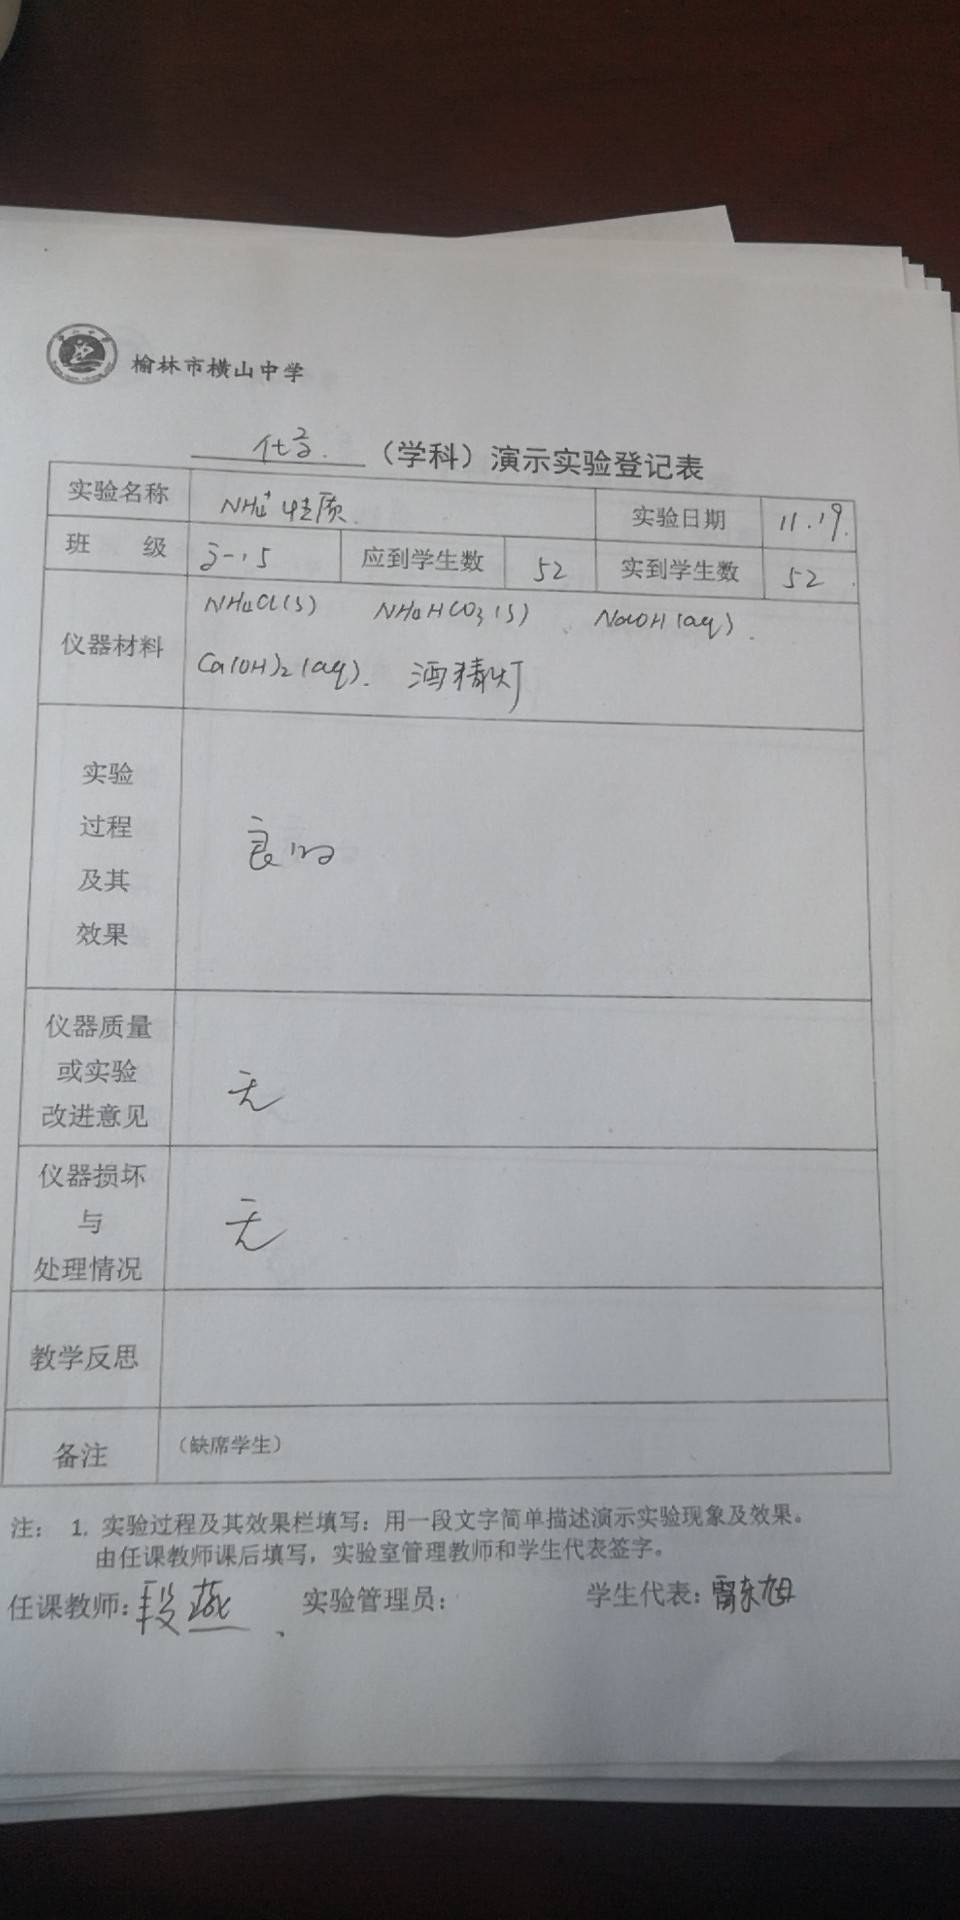 榆林市横山中学
化学.（学科）演示实验登记表
实验名称 NH₄⁺性质. 实验日期 11.19.
班 级 高一.15 应到学生数 52 实到学生数 52.
仪器材料 NH₄Cl(s) NH₄HCO₃(s)、NaOH(aq).
Ca(OH)₂(aq). 酒精灯
实验
过程
及其
效果
良好
仪器质量
或实验
改进意见
无
仪器损坏
与
处理情况
无
教学反思
备注 （缺席学生）
注： 1. 实验过程及其效果栏填写：用一段文字简单描述演示实验现象及效果。
由任课教师课后填写，实验室管理教师和学生代表签字。
任课教师：段燕、 实验管理员： 学生代表：